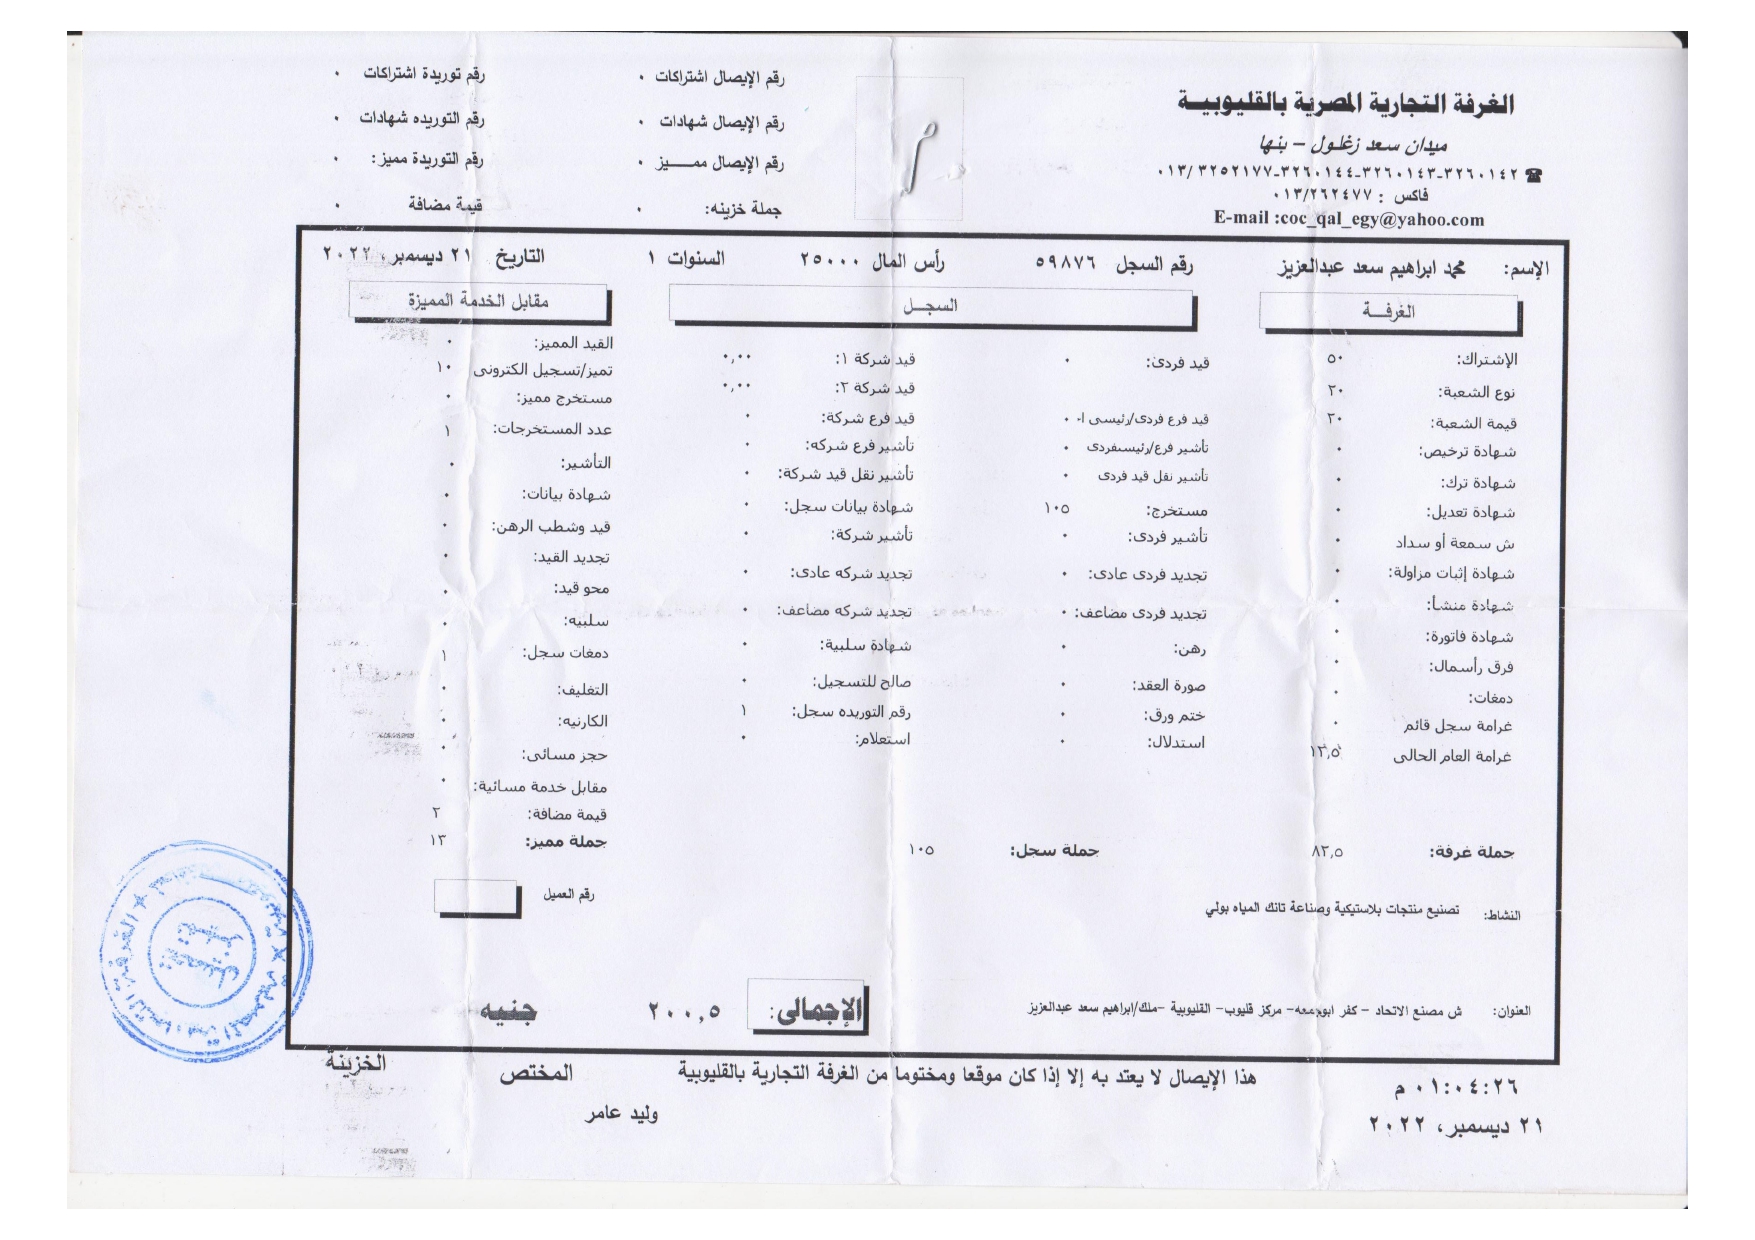 الغرفة التجارية المصرية بالقليوبيــة
ميدان سعد زغلول – بنها
☎ ٣٢٦٠١٤٢-٣٢٦٠١٤٣-٣٢٦٠١٤٤-٣٢٥٢١٧٧ /٠١٣
فاكس : ٠١٣/٢٦٢٤٧٧
E-mail :coc_qal_egy@yahoo.com
رقم الإيصال اشتراكات ٠
رقم توريدة اشتراكات ٠
رقم الإيصال شهادات ٠
رقم التوريده شهادات ٠
رقم الإيصال ممـــــيز ٠
رقم التوريدة مميز: ٠
جملة خزينه: ٠
قيمة مضافة ٠
الإسم: محمد ابراهيم سعد عبدالعزيز رقم السجل ٥٩٨٧٦ رأس المال ٢٥٠٠٠ السنوات ١ التاريخ ٢١ ديسمبر، ٢٠٢٢
الغرفــة
الإشتراك: ٥٠
نوع الشعبة: ٢٠
قيمة الشعبة: ٢٠
شهادة ترخيص: ٠
شهادة ترك: ٠
شهادة تعديل: ٠
ش سمعة أو سداد ٠
شهادة إثبات مزاولة: ٠
شهادة منشأ: ٠
شهادة فاتورة: ٠
فرق رأسمال: ٠
دمغات: ٠
غرامة سجل قائم ٠
غرامة العام الحالى ١٢,٥
جملة غرفة: ٨٢,٥
السجــل
قيد فردى: ٠
قيد فرع فردى/رئيسى ا٠ ٠
تأشير فرع/رئيسىفردى ٠
تأشير نقل قيد فردى ٠
مستخرج: ١٠٥
تأشير فردى: ٠
تجديد فردى عادى: ٠
تجديد فردى مضاعف: ٠
رهن: ٠
صورة العقد: ٠
ختم ورق: ٠
استدلال: ٠
قيد شركة ١: ٠,٠٠
قيد شركة ٢: ٠,٠٠
قيد فرع شركة: ٠
تأشير فرع شركه: ٠
تأشير نقل قيد شركة: ٠
شهادة بيانات سجل: ٠
تأشير شركة: ٠
تجديد شركه عادى: ٠
تجديد شركه مضاعف: ٠
شهادة سلبية: ٠
صالح للتسجيل: ٠
رقم التوريده سجل: ١
استعلام: ٠
جملة سجل: ١٠٥
مقابل الخدمة المميزة
القيد المميز: ٠
تميز/تسجيل الكترونى ١٠
مستخرج مميز: ٠
عدد المستخرجات: ١
التأشير: ٠
شهادة بيانات: ٠
قيد وشطب الرهن: ٠
تجديد القيد: ٠
محو قيد: ٠
سلبيه: ٠
دمغات سجل: ١
التغليف: ٠
الكارنيه: ٠
حجز مسائى: ٠
مقابل خدمة مسائية: ٠
قيمة مضافة: ٢
جملة مميز: ١٣
رقم العميل
النشاط: تصنيع منتجات بلاستيكية وصناعة تانك المياه بولي
العنوان: ش مصنع الاتحاد – كفر ابوجمعه– مركز قليوب– القليوبية –ملك/ابراهيم سعد عبدالعزيز
الإجمالى: ٢٠٠,٥ جنيه
هذا الإيصال لا يعتد به إلا إذا كان موقعا ومختوما من الغرفة التجارية بالقليوبية
المختص
الخزينة
وليد عامر
٠١:٠٤:٢٦ م
٢١ ديسمبر، ٢٠٢٢